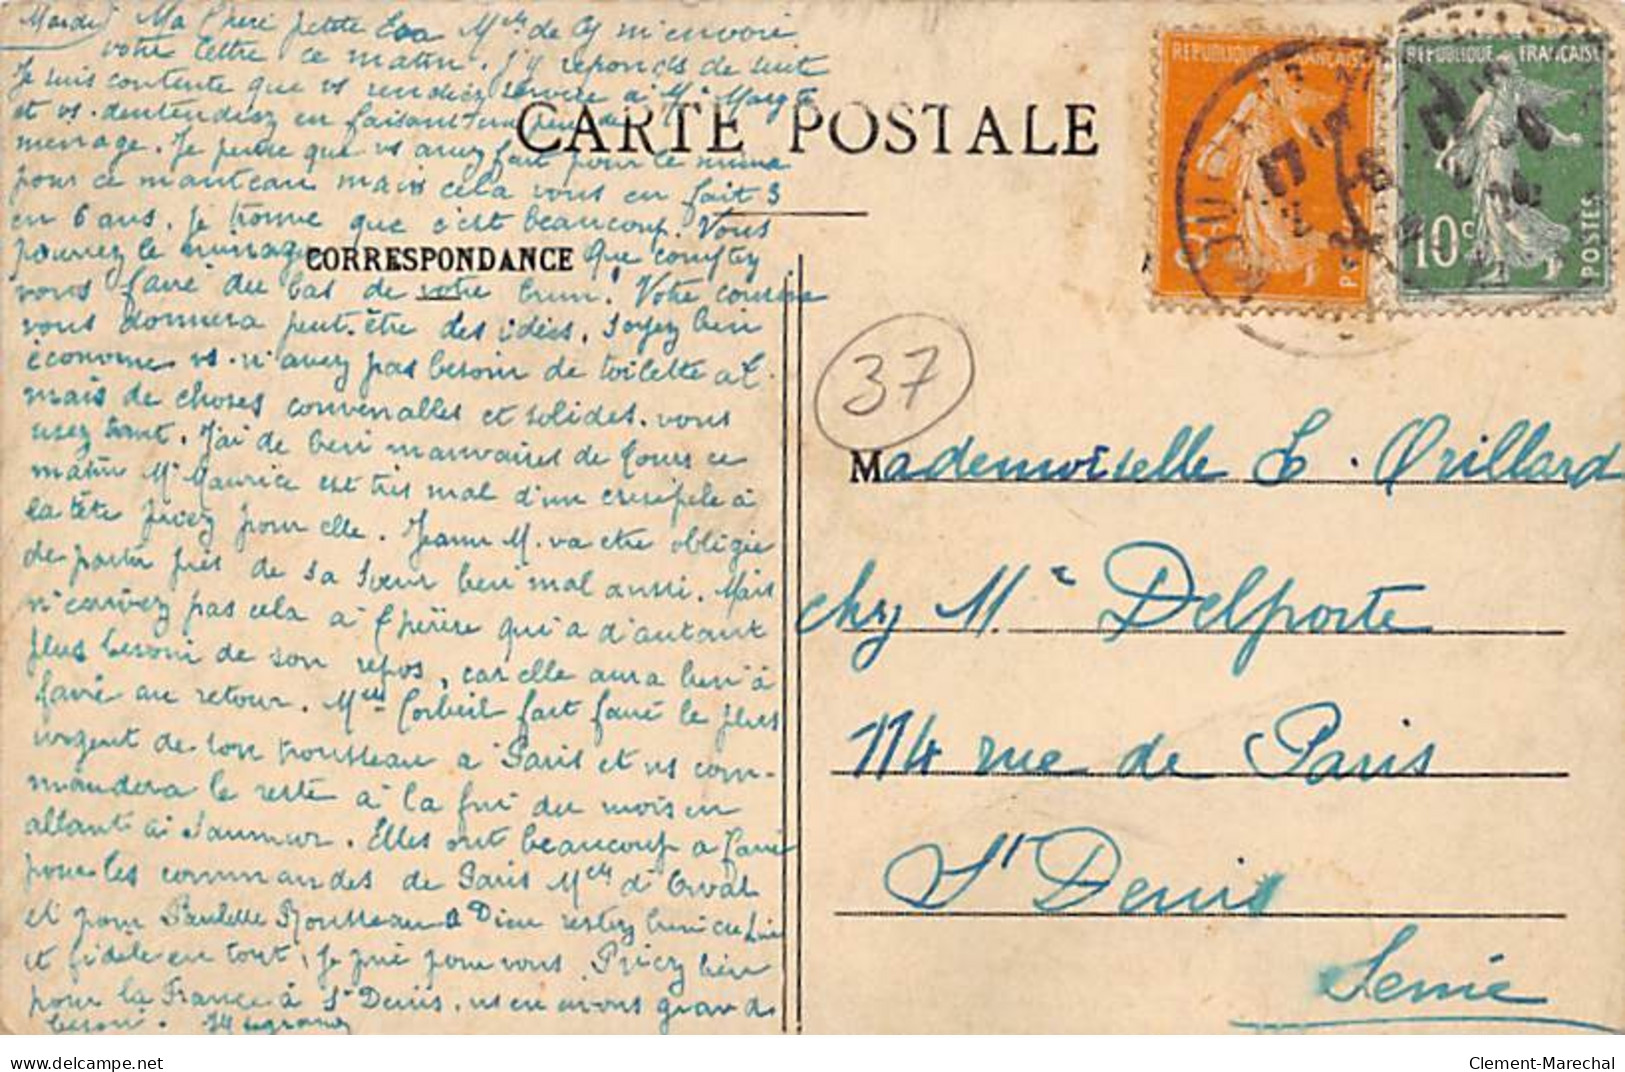 Mardi Ma Chère petite Eva Melle de Cy m'envoie
votre lettre ce matin. J'y reponds de suite
Je suis contente que vs rendiez service à Me Margte
et vs dentendiez en faisant un peu de
menage. Je pense que vs avez fait pour le mieux
pour ce manteau mais cela vous en fait 3
en 6 ans. Je trouve que c'est beaucoup. Vous
pourrez le menager Que comptez
vous faire du bas de votre brun? Votre cousine
vous donnera peut-être des idées. Soyez bien
économe vs n'avez pas besoin de toilette
mais de choses convenables et solides. vous
usez tant. J'ai de bien mauvaises de Tours ce
matin Me Maurice est très mal d'un eresipèle à
la tête priez pour elle. Jeanne M. va etre obligée
de partir près de sa soeur bien mal aussi. Mais
n'ecrivez pas cela à Thérèse qui a d'autant
plus besoin de son repos, car elle aura bien à
faire au retour. Melle Corbeil fait faire le plus
urgent de son trousseau à Paris et ns com-
mandera le reste à la fin du mois en
allant à Saumur. Elles ont beaucoup a faire
pour les commandes de Paris Melle d'Orval
et pour Paulette Rousseau A Dieu restez bien
et fidèle en tout, Je prie pour vous Priez bien
pour la France à St Denis. ns en avons grand
besoin.
CARTE POSTALE
CORRESPONDANCE
REPUBLIQUE FRANÇAISE
REPUBLIQUE FRANÇAISE
10c
POSTES
37
Mademoiselle E. Orillard
chez Me Delporte
114 rue de Paris
St Denis
Seine
www.delcampe.net
Clement-Marechal